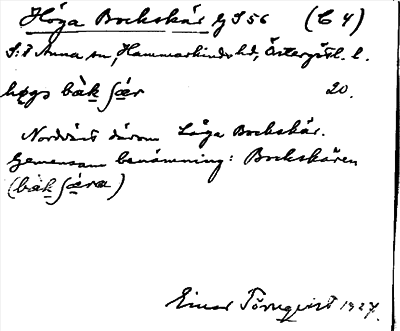 Höga Bockskär Lj S 56 (C 4)
S:t Anna sn, Hammarkinds hd, Östergötl. l.
høgs bàk ʃǽr 20.
Nordväst därom Låga Bockskär.
Gemensam benämning: Bockskären
(bàk ʃæra)
Einar Törnqvist 1927.